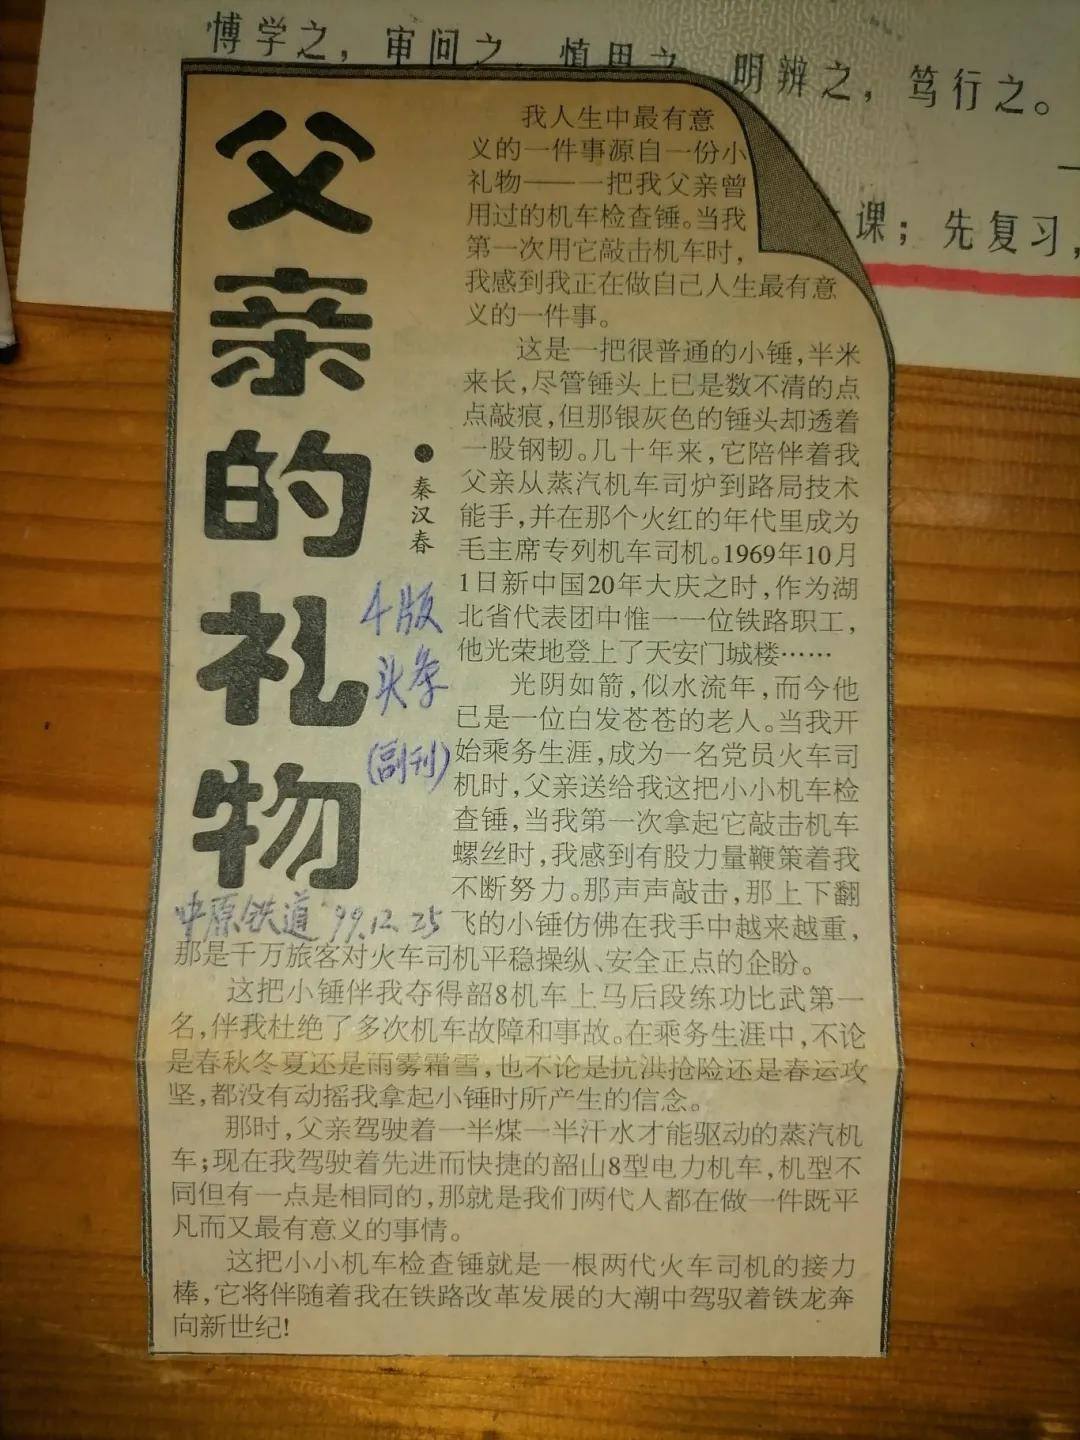 博学之，审问之，慎思之，明辨之，笃行之。
课；先复习，
父亲的礼物
●秦汉春
4版
头条
(副刊)
中原铁道 '99.12.25
我人生中最有意
义的一件事源自一份小
礼物——一把我父亲曾
用过的机车检查锤。当我
第一次用它敲击机车时，
我感到我正在做自己人生最有意
义的一件事。
这是一把很普通的小锤，半米
来长，尽管锤头上已是数不清的点
点敲痕，但那银灰色的锤头却透着
一股钢韧。几十年来，它陪伴着我
父亲从蒸汽机车司炉到路局技术
能手，并在那个火红的年代里成为
毛主席专列机车司机。1969年10月
1日新中国20年大庆之时，作为湖
北省代表团中惟一一位铁路职工，
他光荣地登上了天安门城楼……
光阴如箭，似水流年，而今他
已是一位白发苍苍的老人。当我开
始乘务生涯，成为一名党员火车司
机时，父亲送给我这把小小机车检
查锤，当我第一次拿起它敲击机车
螺丝时，我感到有股力量鞭策着我
不断努力。那声声敲击，那上下翻
飞的小锤仿佛在我手中越来越重，
那是千万旅客对火车司机平稳操纵、安全正点的企盼。
这把小锤伴我夺得韶8机车上马后段练功比武第一
名，伴我杜绝了多次机车故障和事故。在乘务生涯中，不论
是春秋冬夏还是雨雾霜雪，也不论是抗洪抢险还是春运攻
坚，都没有动摇我拿起小锤时所产生的信念。
那时，父亲驾驶着一半煤一半汗水才能驱动的蒸汽机
车；现在我驾驶着先进而快捷的韶山8型电力机车，机型不
同但有一点是相同的，那就是我们两代人都在做一件既平
凡而又最有意义的事情。
这把小小机车检查锤就是一根两代火车司机的接力
棒，它将伴随着我在铁路改革发展的大潮中驾驭着铁龙奔
向新世纪！